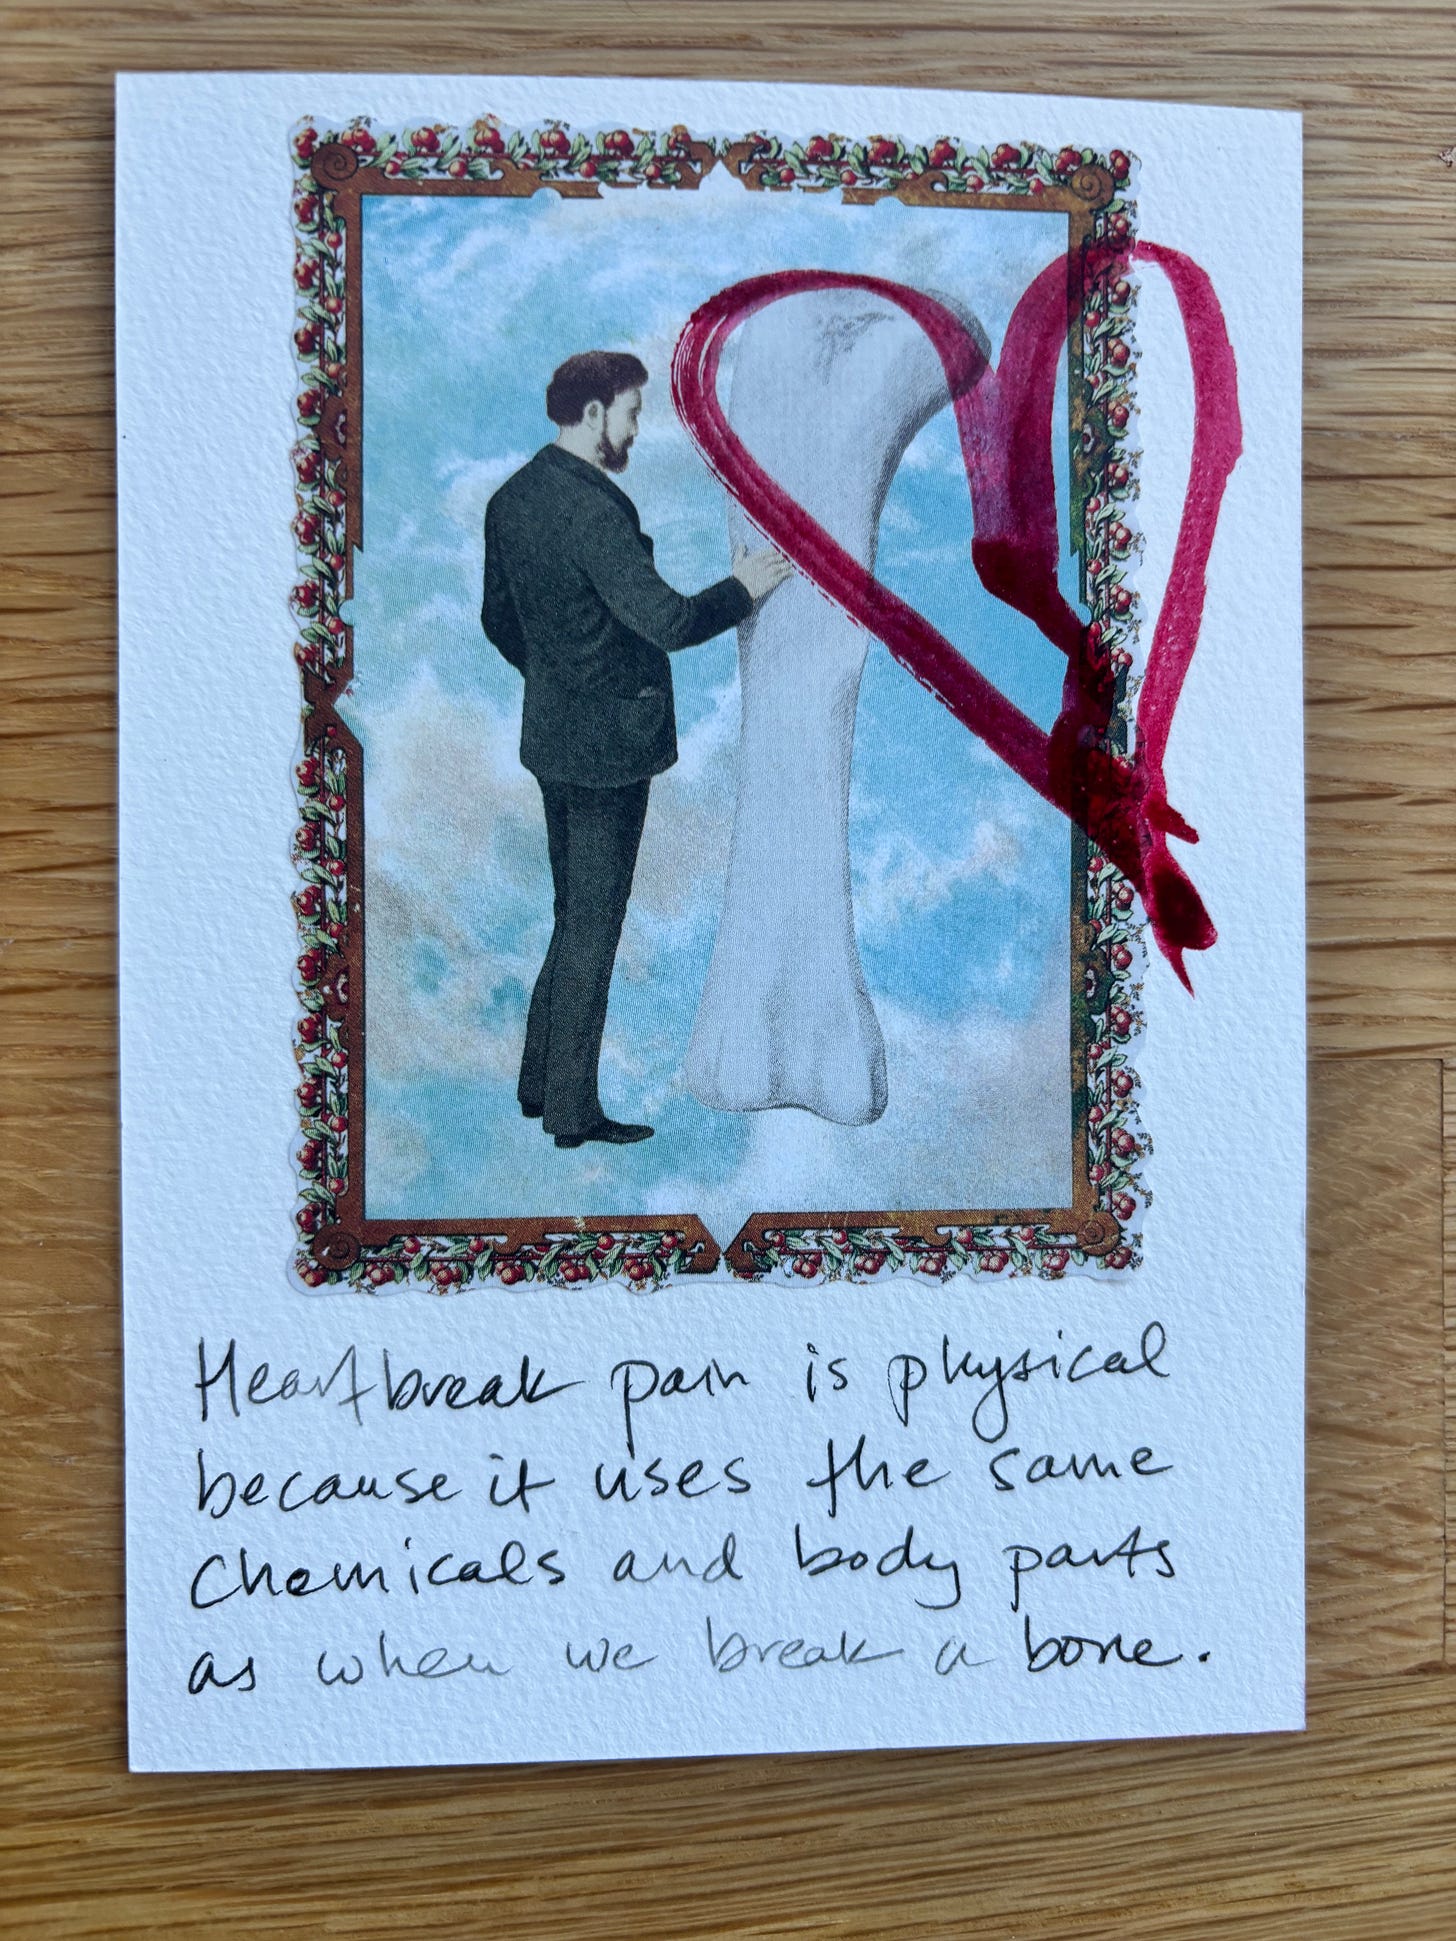 Heartbreak pain is physical
because it uses the same
chemicals and body parts
as when we break a bone.